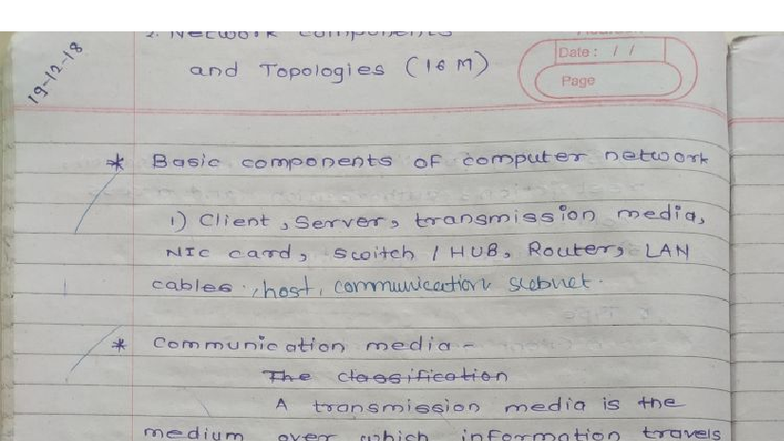 2. Network Components
and Topologies (16 M)
19-12-18
Date : / /
Page
* Basic components of computer network
1) Client, Server, transmission media,
NIC card, switch / HUB, Router, LAN
cables, host, communication subnet.
* Communication media -
The classification
A transmission media is the
medium over which information travels